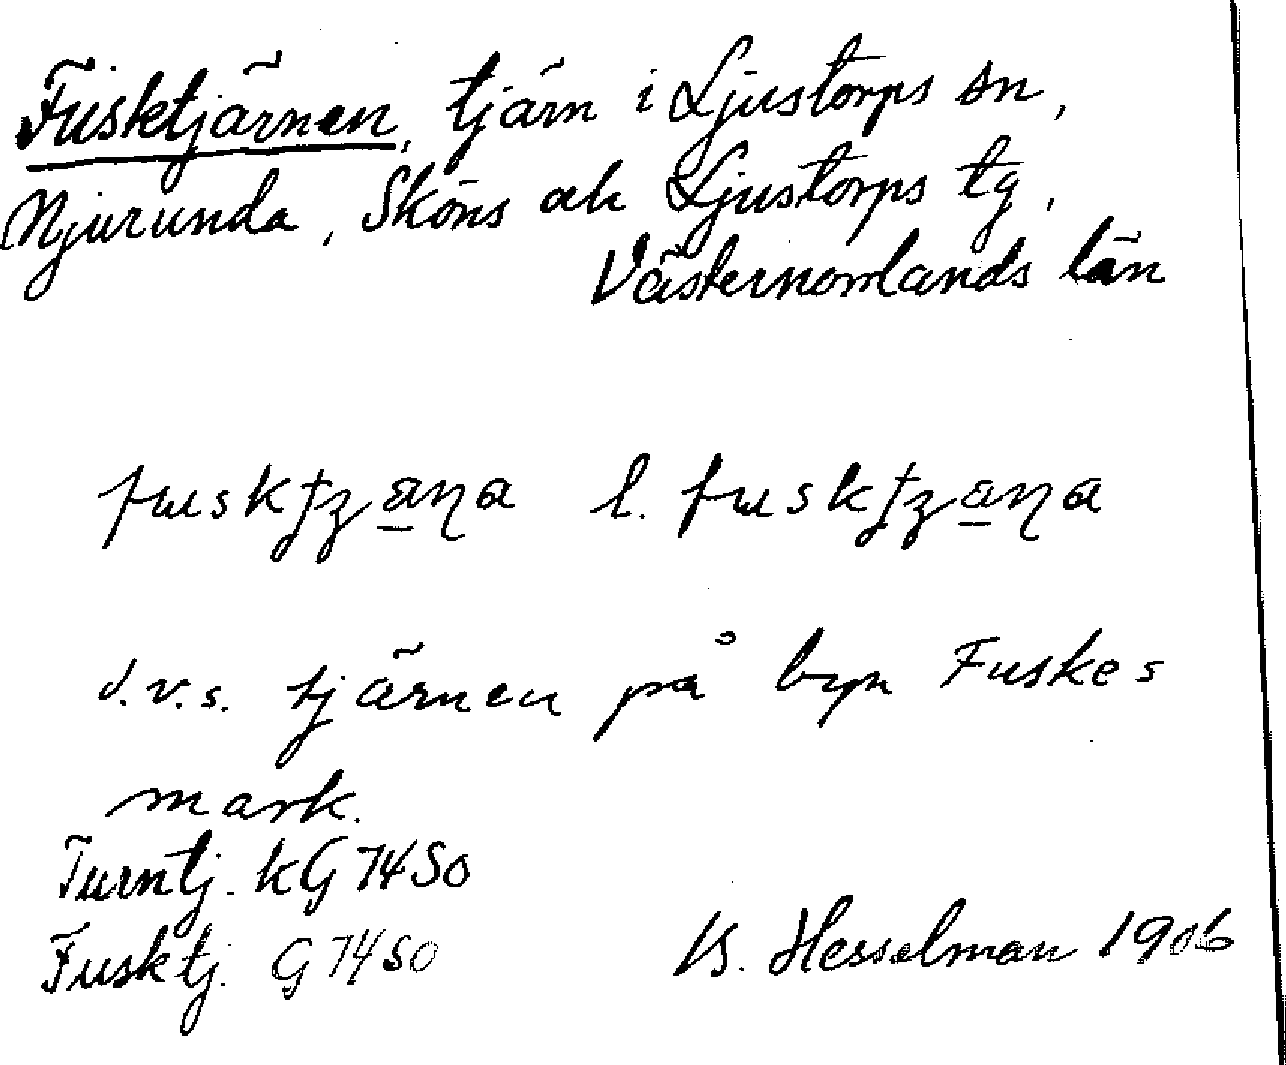 Fusktjärnen, tjärn i Ljustorps sn,
Njurunda, Sköns ah Ljustorps tg,
Västernorrlands län
l.
d.v.s. tjärnen på byn Fuskes
mark.
Turntj. kG 74 SO
Fusktj. G 74 SO
B. Hesselman 1906